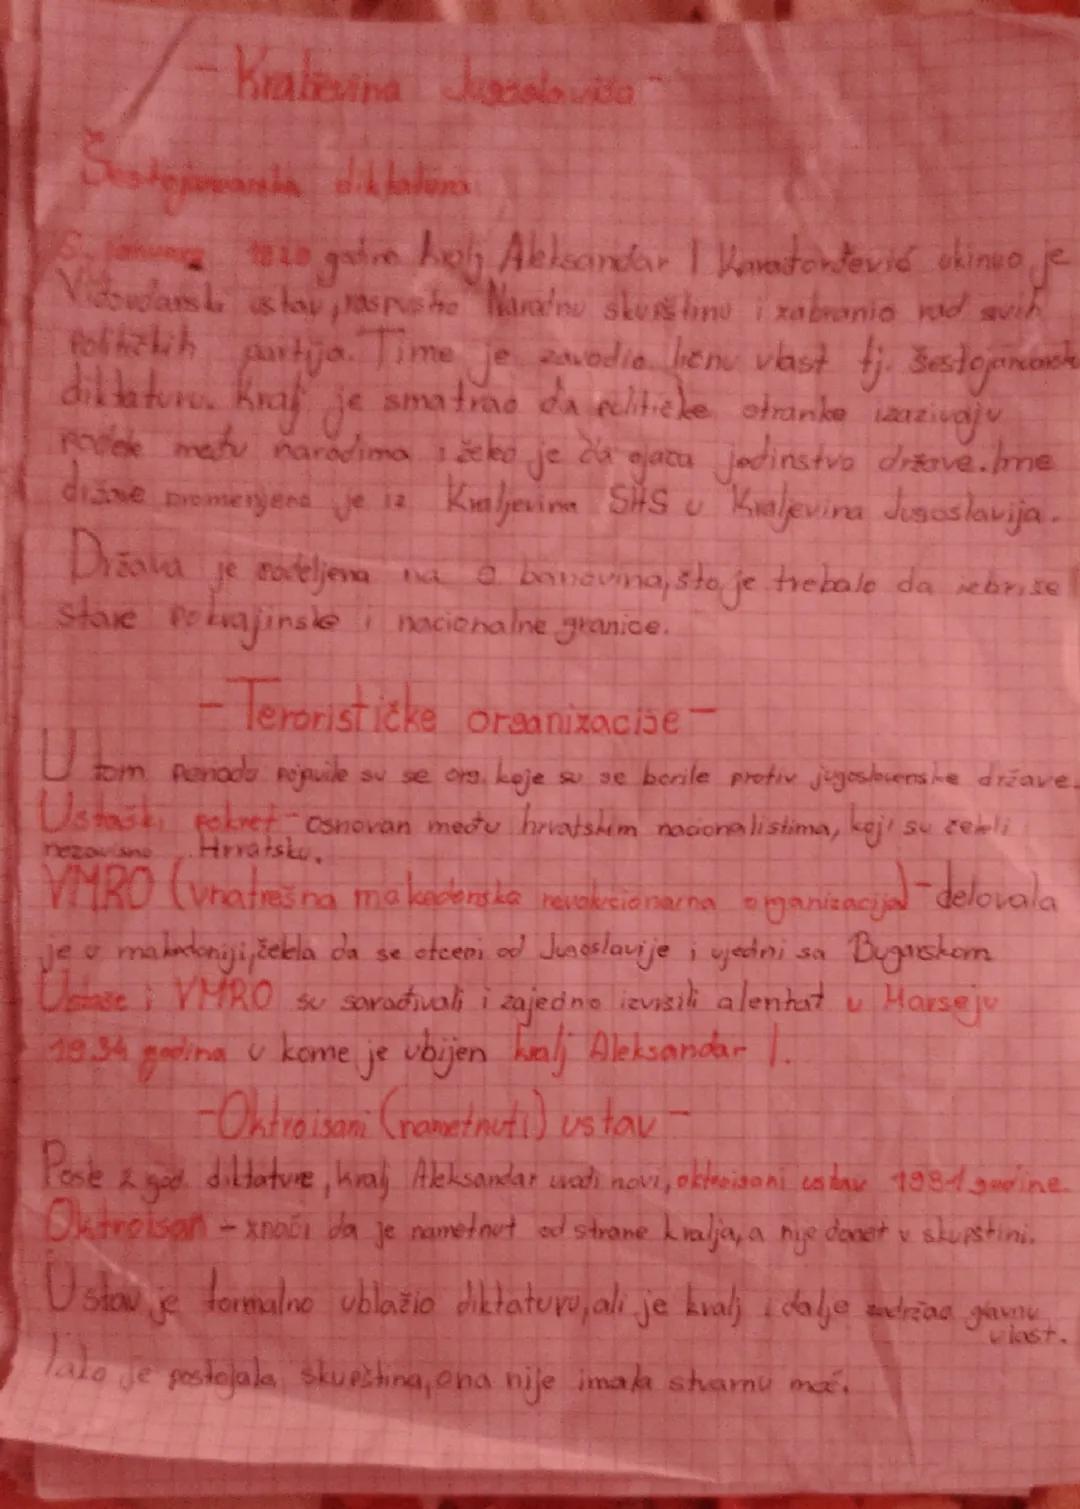 - Kraljevina Jugoslavija -
Šestojanuarska diktatura
6. januara godine kralj Aleksandar I Karađorđević ukinuo je
Vidovdanski ustav, raspustio Narodnu skupštinu i zabranio rad svih
političkih partija. Time je zavodio ličnu vlast tj. šestojanuarsku
diktaturu. Kralj je smatrao da političke stranke izazivaju
podele među narodima i želeo je da ojača jedinstvo države. Ime
države promenjeno je iz Kraljevina SHS u Kraljevina Jugoslavija.
Država je podeljena na banovina, što je trebalo da izbriše
stare pokrajinske i nacionalne granice.
- Terorističke organizacije -
U tom periodu pojavile su se org. koje su se borile protiv jugoslovenske države.
Ustaški pokret - osnovan među hrvatskim nacionalistima, koji su želeli
nezavisnu Hrvatsku.
VMRO (vnatrešna makedonska revolucionarna organizacija) - delovala
je u makedoniji, želela da se otcepi od Jugoslavije i ujedni sa Bugarskom
Ustaše i VMRO su sarađivali i zajedno izvršili atentat u Marseju
1934 godina u kome je ubijen kralj Aleksandar I.
- Oktroisani (nametnuti) ustav -
Posle 2 god. diktature, kralj Aleksandar uvodi novi, oktroisani ustav 1931 godine.
Oktroisan - znači da je nametnut od strane kralja, a nije donet u skupštini.
Ustav je formalno ublažio diktaturu, ali je kralj i dalje zadržao glavnu
vlast.
Iako je postojala skupština, ona nije imala stvarnu moć.